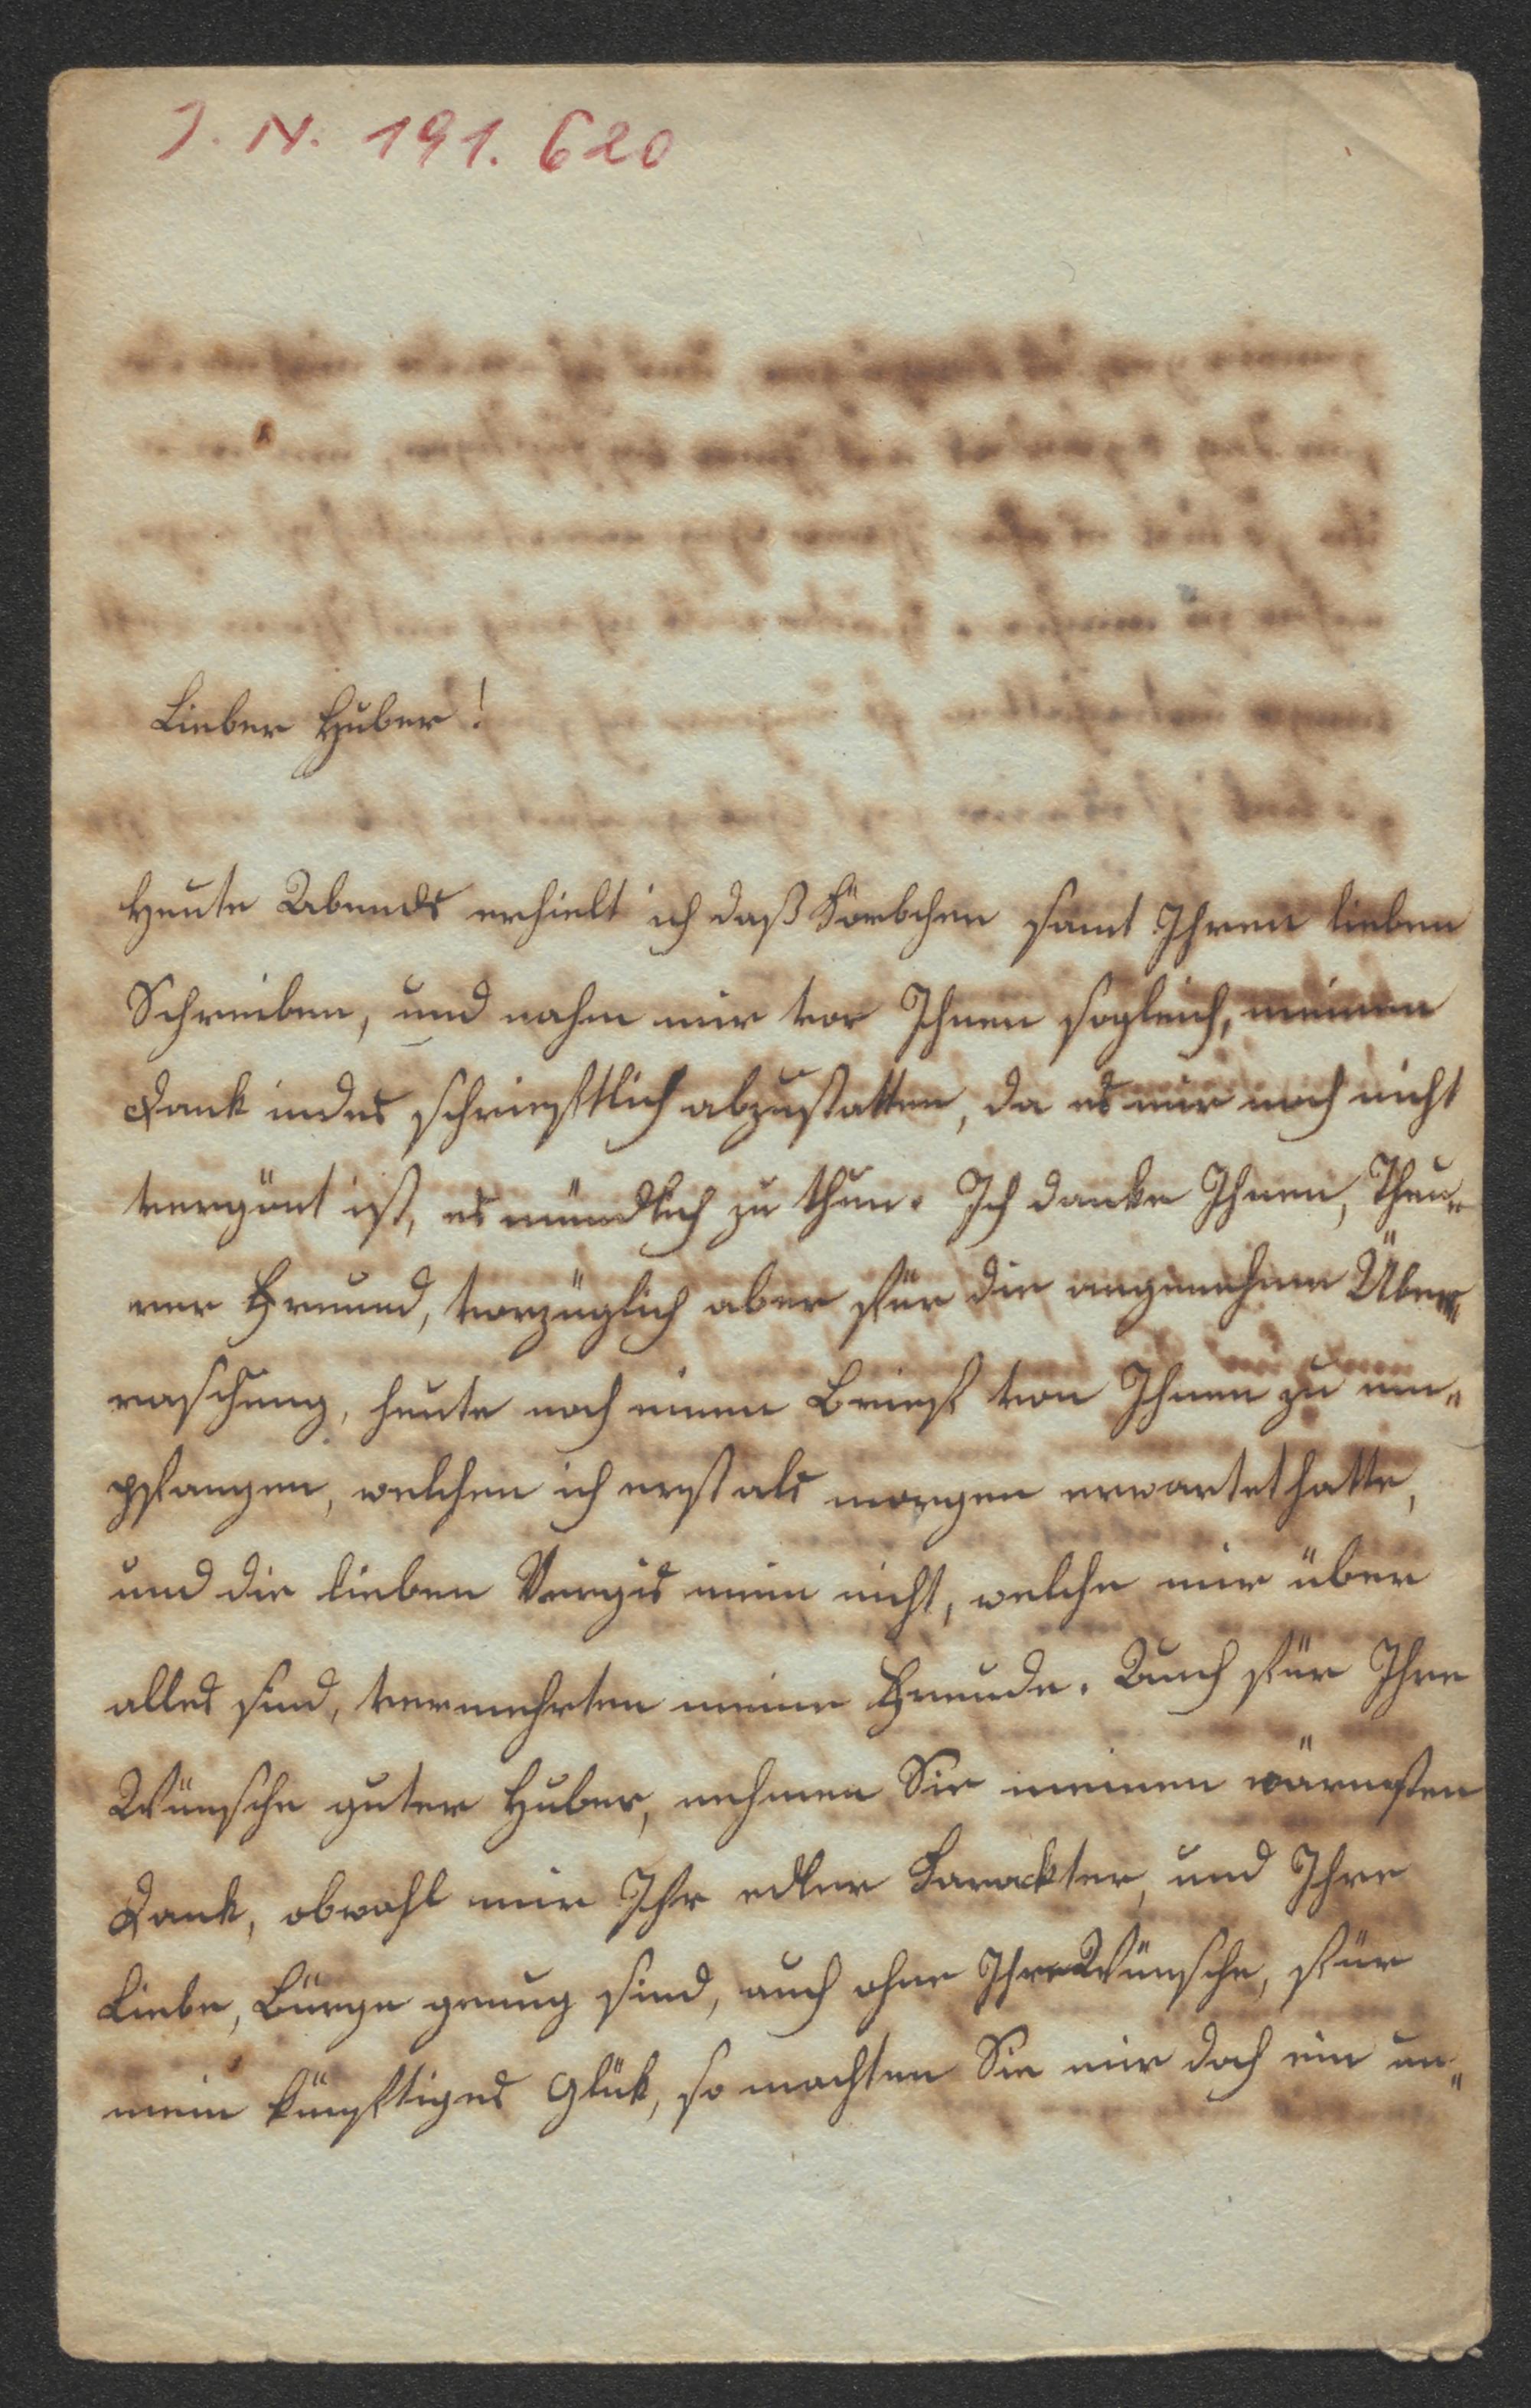 J. N. 191.620
Lieber Huber!
Heute Abends erhielt ich daß Körbchen samt Ihren lieben
Schreiben, und nahm mir vor Ihnen sogleich, meinen
Dank indes schrieftlich abzustatten, da es mir noch nicht
vergönt ist, es mündlich zu thun. Ich danke Ihnen, Theu„
rer Freund, vorzüglich aber für die angenehme Über„
raschung, heute noch einen Brief von Ihnen zu em„
pfangen, welchen ich erst als morgen erwartet hatte,
und die lieben Vergis mein nicht, welche mir über
alles sind, vermehrten meine Freude. Auch für Ihre
Wünsche guter Huber, nehmen Sie meinen wärmsten
Dank, obwohl mir Ihr edler Karackter, und Ihre
Liebe, Bürge genug sind, auch ohne Ihre Wünsche, für
mein künftiges Glük, so machten Sie mir doch ein un„